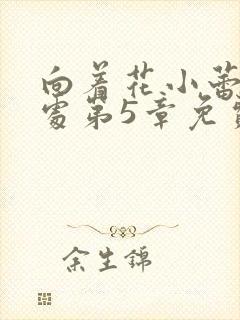 向着花小蕾
处第5章免费
余生锦